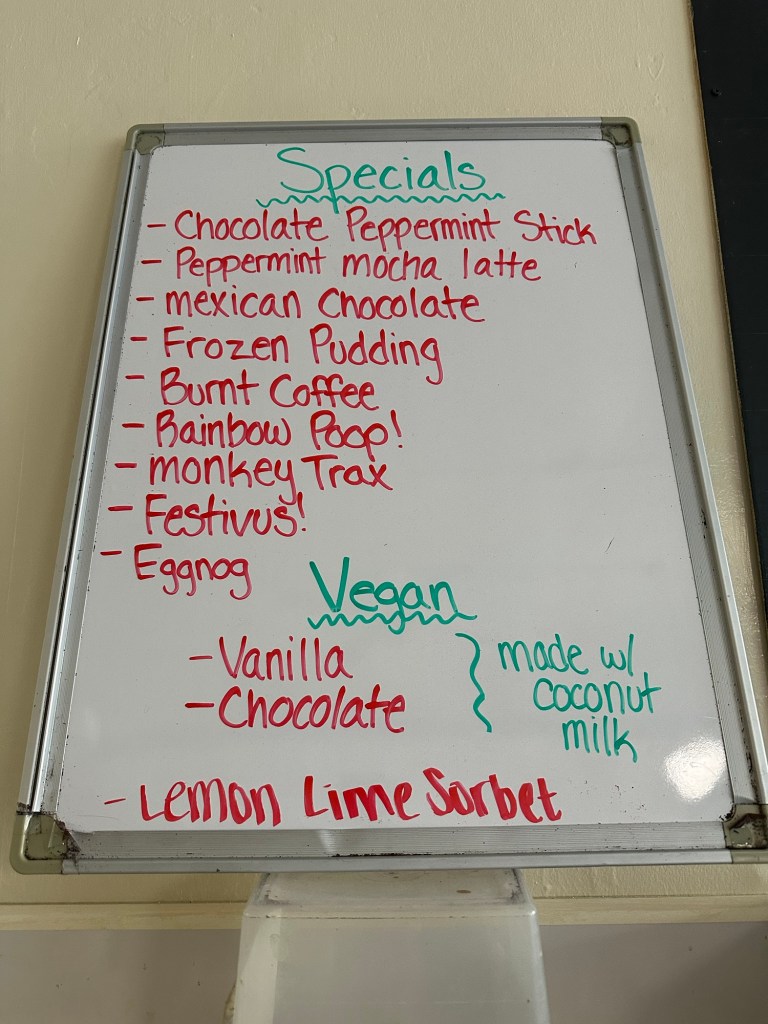 Specials
- Chocolate Peppermint Stick
- Peppermint mocha latte
- mexican Chocolate
- Frozen Pudding
- Burnt Coffee
- Rainbow Poop!
- monkey Trax
- Festivus!
- Eggnog
Vegan
- Vanilla
- Chocolate
made w/
coconut
milk
- Lemon Lime Sorbet